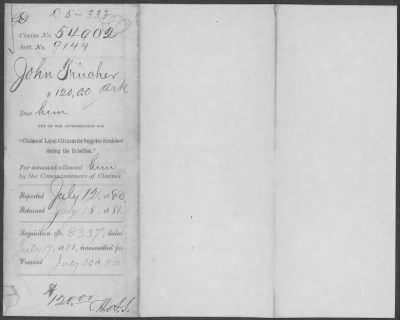 D 05-333
Claim No. 54902
Sett. No. 9144
John Trincher
Ark
$120.00
Due him
OUT OF THE APPROPRIATION FOR
"Claims of Loyal Citizens for Supplies furnished
during the Rebellion."
For amount allowed him
by the Commissioners of Claims.
Reported July 12, 1880.
Returned July 15, 1880.
Requisition No. 8337, dated
July 17, 1880, transmitted for
Warrant July 20, 1880
$120.00